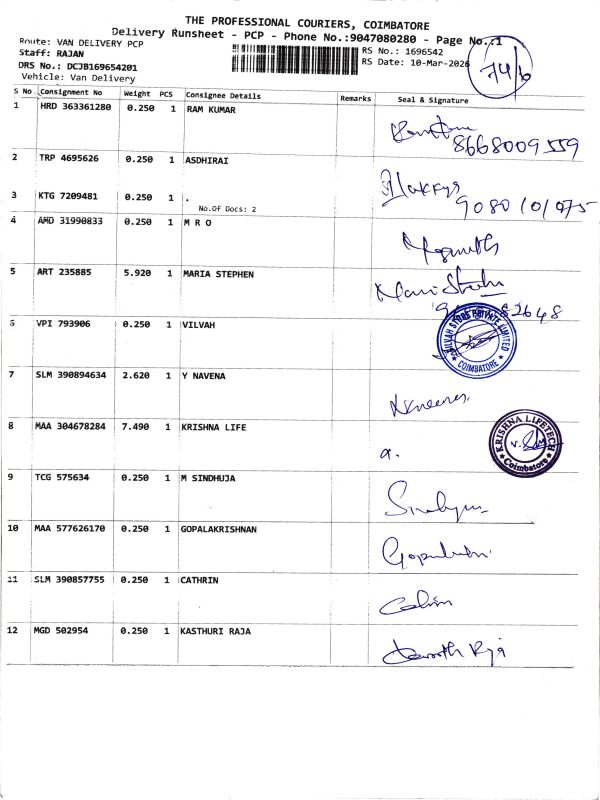 THE PROFESSIONAL COURIERS, COIMBATORE
Delivery Runsheet - PCP - Phone No.:9047080280 - Page No.:1
Route: VAN DELIVERY PCP
Staff: RAJAN
DRS No.: DCJB169654201
Vehicle: Van Delivery
RS No.: 1696542
RS Date: 10-Mar-2026
74/6
S No Consignment No Weight PCS Consignee Details Remarks Seal & Signature
1 HRD 363361280 0.250 1 RAM KUMAR
8668009559
2 TRP 4695626 0.250 1 ASDHIRAI
3 KTG 7209481 0.250 1 .
No.Of Docs: 2
9080101075
4 AMD 31990833 0.250 1 M R O
5 ART 235885 5.920 1 MARIA STEPHEN
82648
6 VPI 793906 0.250 1 VILVAH
VILVAH STORE PRIVATE LIMITED
COIMBATORE
7 SLM 390894634 2.620 1 Y NAVENA
8 MAA 304678284 7.490 1 KRISHNA LIFE
KRISHNA LIFETECH
Coimbatore
9 TCG 575634 0.250 1 M SINDHUJA
10 MAA 577626170 0.250 1 GOPALAKRISHNAN
11 SLM 390857755 0.250 1 CATHRIN
12 MGD 502954 0.250 1 KASTHURI RAJA